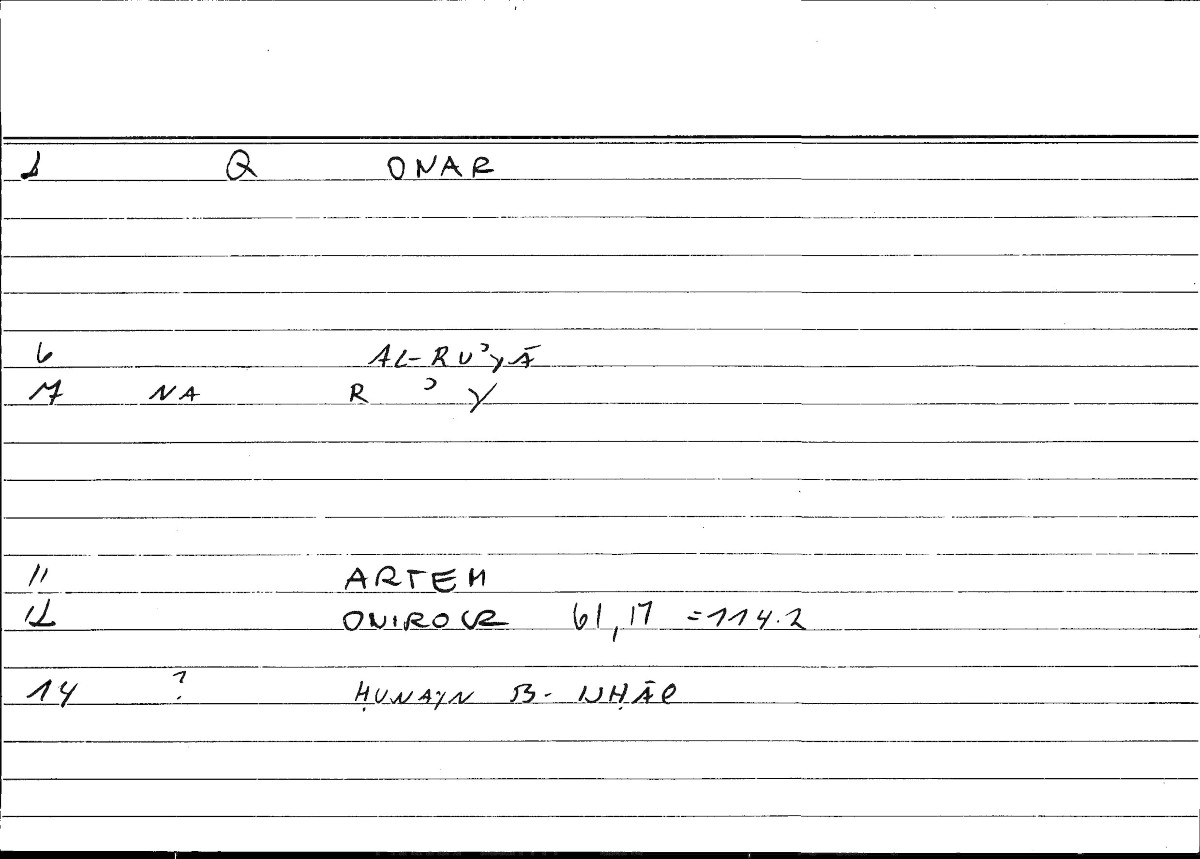 1 Q ONAR
6 AL-RUʾYĀ
7 NA R ʾ Y
11 ARTEM
12 ONIROCR 61,17 =114.2
14 ? ḤUNAYN B- ISḤĀQ